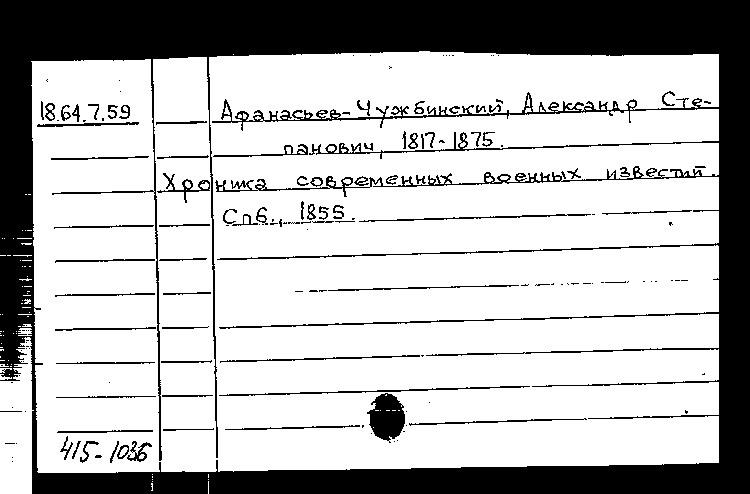 18.64.7.59
Афанасьев-Чужбинский, Александр Сте-
панович, 1817-1875.
Хроника современных военных известий.
Спб., 1855.
415-1036